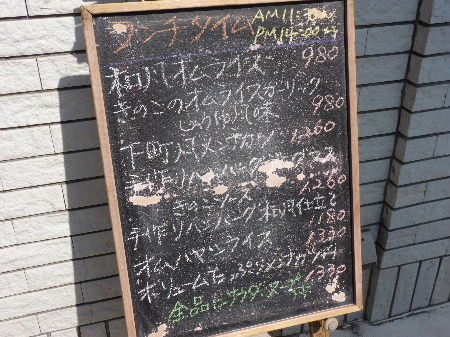 ランチタイム AM11:
PM14:00
和風オムライス 980
きのこのオムライスガーリック
しょうゆ味 980
下町風メンチカツ 1260
手作りハンバーグ
きのこソース 1260
手作りハンバーグ和風仕立て
1180
オムハヤシライス 1330
ボリュームたっぷりメンチカツ
1330
全品にサラダ・スープ付